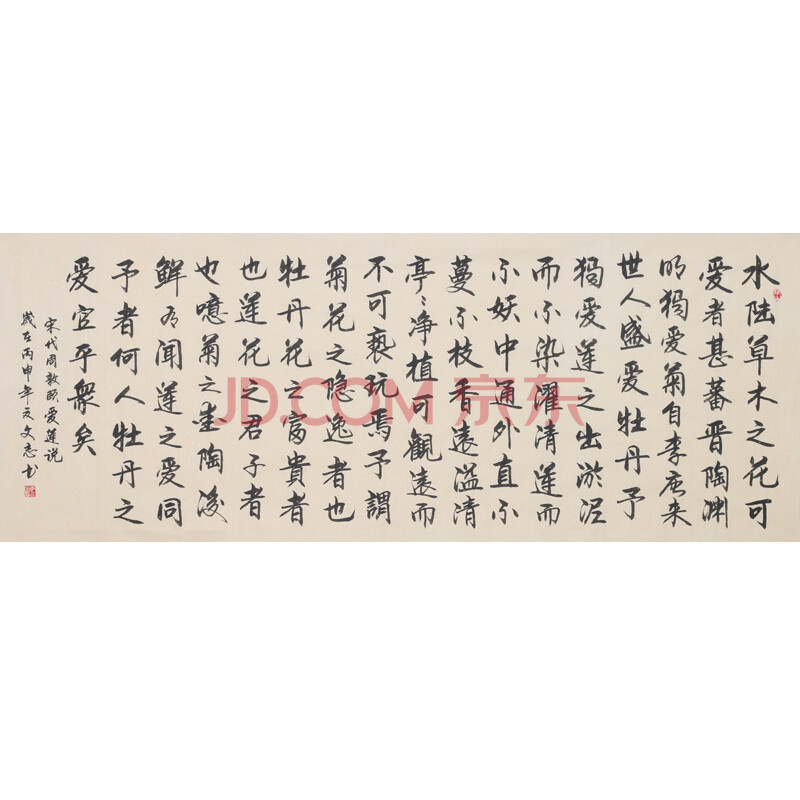 水陆草木之花可
爱者甚蕃晋陶渊
明獨爱菊自李唐来
世人盛爱牡丹予
獨爱蓮之出淤泥
而不染濯清蓮而
不妖中通外直不
蔓不枝香遠溢清
亭々净植可觀遠而
不可亵玩焉予謂
菊花之隐逸者也
牡丹花之富貴者
也蓮花之君子者
也噫菊之爱陶後
鲜有聞蓮之爱同
予者何人牡丹之
爱宜乎衆矣
宋代周敦颐爱蓮说
歲在丙申年夏文志书
JD.COM 京东